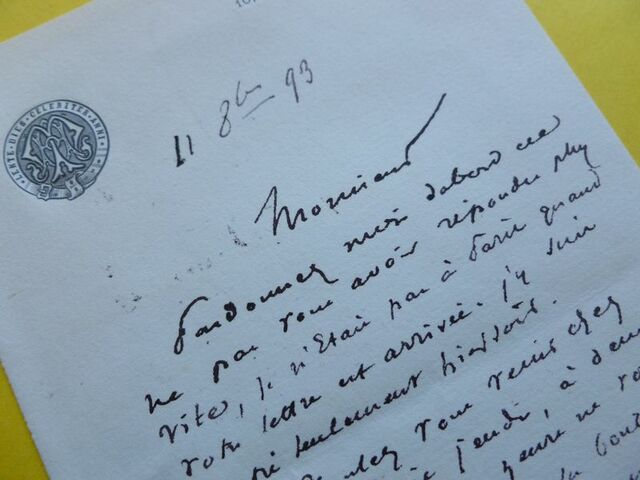 LENTE DIES CELERITER ANNI
11 8bre 93
Monsieur
Pardonnez moi d'abord de
ne pas vous avoir répondu plus
vite, je n'étais pas à Paris quand
votre lettre est arrivée. J'y suis
seulement hier soir.
vous venir chez
jeudi, à
heure ne